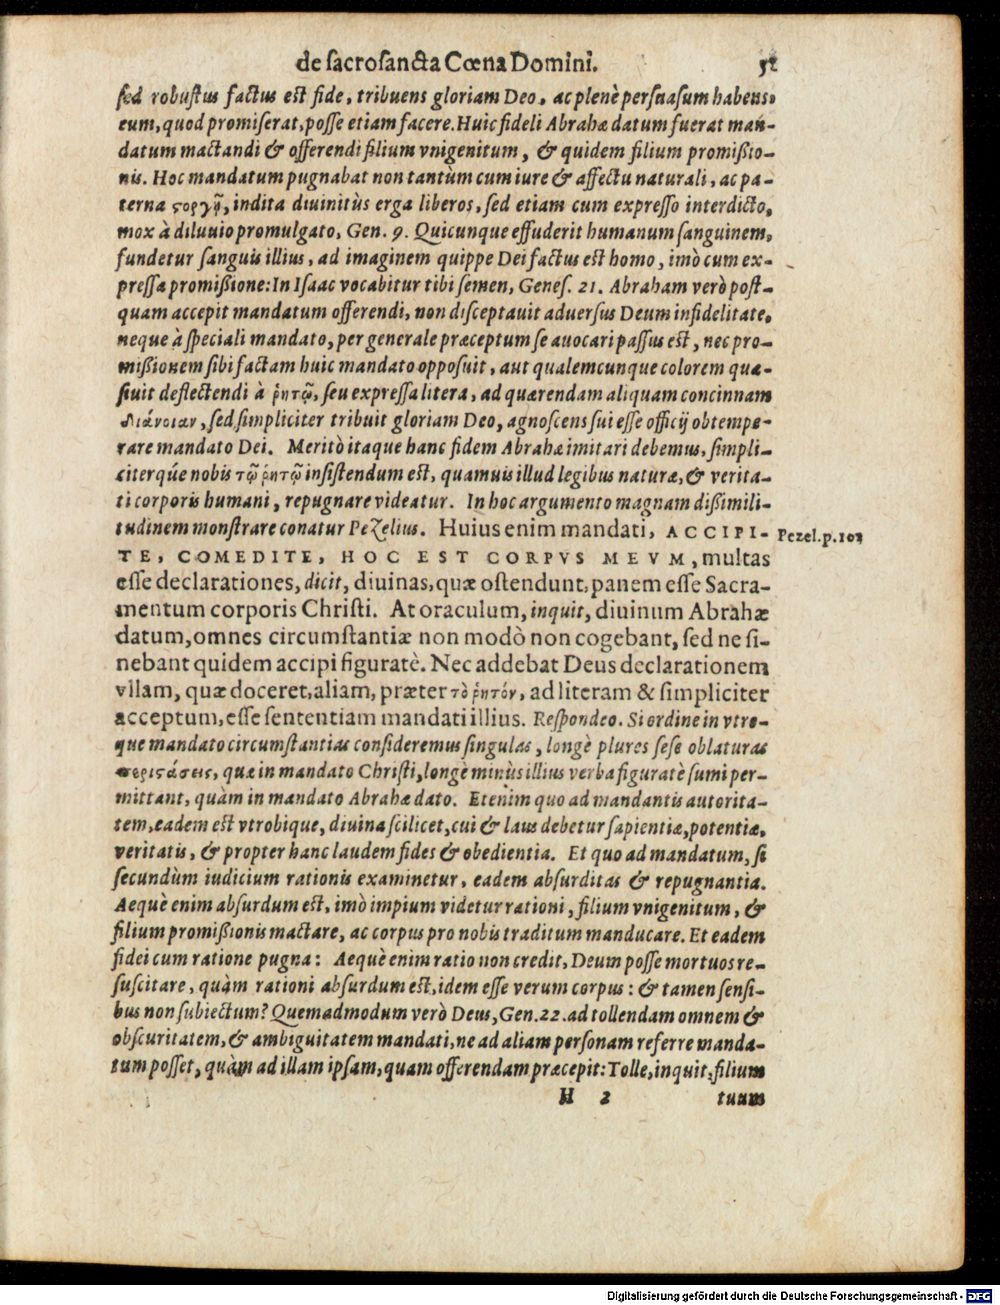 de sacrosancta Cœna Domini. 52
sed robustus factus est fide, tribuens gloriam Deo, ac plenè persuasum habens,
eum, quod promiserat, posse etiam facere. Huic fideli Abrahæ datum fuerat man-
datum mactandi & offerendi filium vnigenitum, & quidem filium promißio-
nis. Hoc mandatum pugnabat non tantùm cum iure & affectu naturali, ac pa-
terna ςοργῇ, indita diuinitùs erga liberos, sed etiam cum expresso interdicto,
mox à diluuio promulgato, Gen. 9. Quicunque effuderit humanum sanguinem,
fundetur sanguis illius, ad imaginem quippe Dei factus est homo, imò cum ex-
pressa promißione: In Isaac vocabitur tibi semen, Genes. 21. Abraham verò post-
quam accepit mandatum offerendi, non disceptauit aduersus Deum infidelitate,
neque à speciali mandato, per generale præceptum se auocari passus est, nec pro-
mißionem sibi factam huic mandato opposuit, aut qualemcunque colorem quæ-
siuit deflectendi à ῥητῷ, seu expressa litera, ad quærendam aliquam concinnam
διάνοιαν, sed simpliciter tribuit gloriam Deo, agnoscens sui esse officij obtempe-
rare mandato Dei. Meritò itaque hanc fidem Abrahæ imitari debemus, simpli-
citerq́ue nobis τῷ ῥητῷ insistendum est, quamuis illud legibus naturæ, & verita-
ti corporis humani, repugnare videatur. In hoc argumento magnam dißimili-
tudinem monstrare conatur Pezelius. Huius enim mandati, ACCIPI- Pezel. p. 103
TE, COMEDITE, HOC EST CORPVS MEVM, multas
esse declarationes, dicit, diuinas, quæ ostendunt, panem esse Sacra-
mentum corporis Christi. At oraculum, inquit, diuinum Abrahæ
datum, omnes circumstantiæ non modò non cogebant, sed ne si-
nebant quidem accipi figuratè. Nec addebat Deus declarationem
vllam, quæ doceret, aliam, præter τὸ ῥητόν, ad literam & simpliciter
acceptum, esse sententiam mandati illius. Respondeo. Si ordine in vtro-
que mandato circumstantias consideremus singulas, longè plures sese oblaturas
περιςάσεις, quæ in mandato Christi, longè minùs illius verba figuratè sumi per-
mittant, quàm in mandato Abrahæ dato. Etenim quo ad mandantis autorita-
tem, eadem est vtrobique, diuina scilicet, cui & laus debetur sapientiæ, potentiæ,
veritatis, & propter hanc laudem fides & obedientia. Et quo ad mandatum, si
secundùm iudicium rationis examinetur, eadem absurditas & repugnantia.
Aequè enim absurdum est, imò impium videtur rationi, filium vnigenitum, &
filium promißionis mactare, ac corpus pro nobis traditum manducare. Et eadem
fidei cum ratione pugna: Aequè enim ratio non credit, Deum posse mortuos re-
suscitare, quàm rationi absurdum est, idem esse verum corpus: & tamen sensi-
bus non subiectum? Quemadmodum verò Deus, Gen. 22. ad tollendam omnem &
obscuritatem, & ambiguitatem mandati, ne ad aliam personam referre manda-
tum posset, quàm ad illam ipsam, quam offerendam præcepit: Tolle, inquit, filium
H 2 tuum
Digitalisierung gefördert durch die Deutsche Forschungsgemeinschaft - DFG